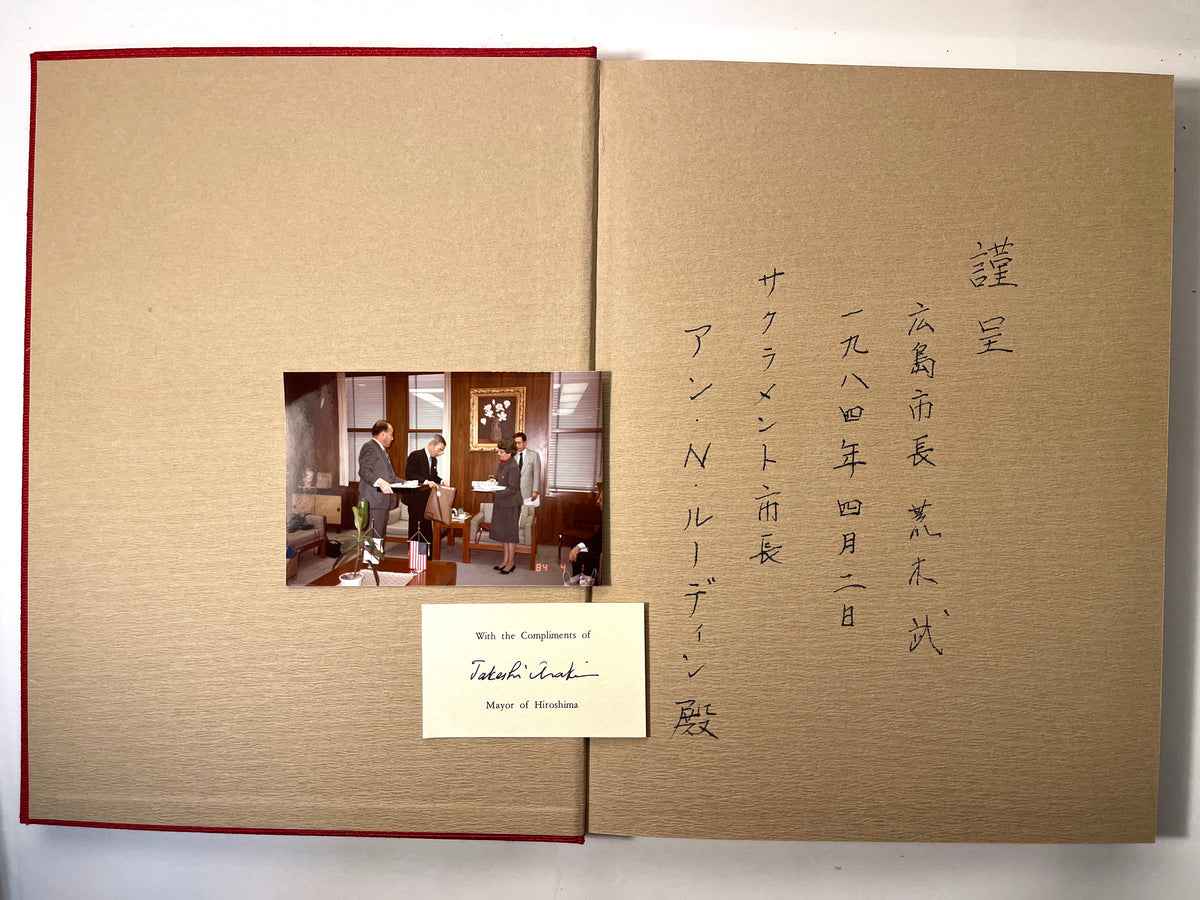 謹呈
広島市長 荒木 武
一九八四年四月二日
サクラメント市長
アン・N・ルーディン殿
With the Compliments of
Takeshi Araki
Mayor of Hiroshima
84 4